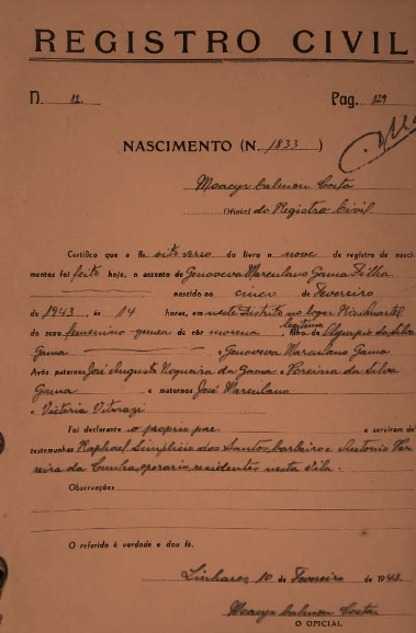 REGISTRO CIVIL
N. 12. Pag. 129
NASCIMENTO (N. 1833 )
Moacyr Calmon Costa
Oficial do Registro Civil.
Certifico que a fls. oito verso do livro n nove de registro de nasci-
mentos foi feito hoje, o assento de Genoveva Marculano Gama Filha
nascido ao cinco de Fevereiro
de 1943 ás 14 horas, em neste Distrito no logar
do sexo feminino de côr morena legitima filha de Olympio da Silva
Gama e Genoveva Marculano Gama
Avós paternos José Augusto Nogueira da Gama e da Silva
Gama e maternos José Marculano
e Victoria
Foi declarante o proprio pae. e serviram de
testemunhas Raphael Simplicio dos Santos, barbeiro e Antonio Fer-
reira da Cunha, operario, residentes nesta Vila.
Observações
O referido é verdade e dou fé.
Linhares, 10 de Fevereiro de 1943.
Moacyr Calmon Costa
O OFICIAL